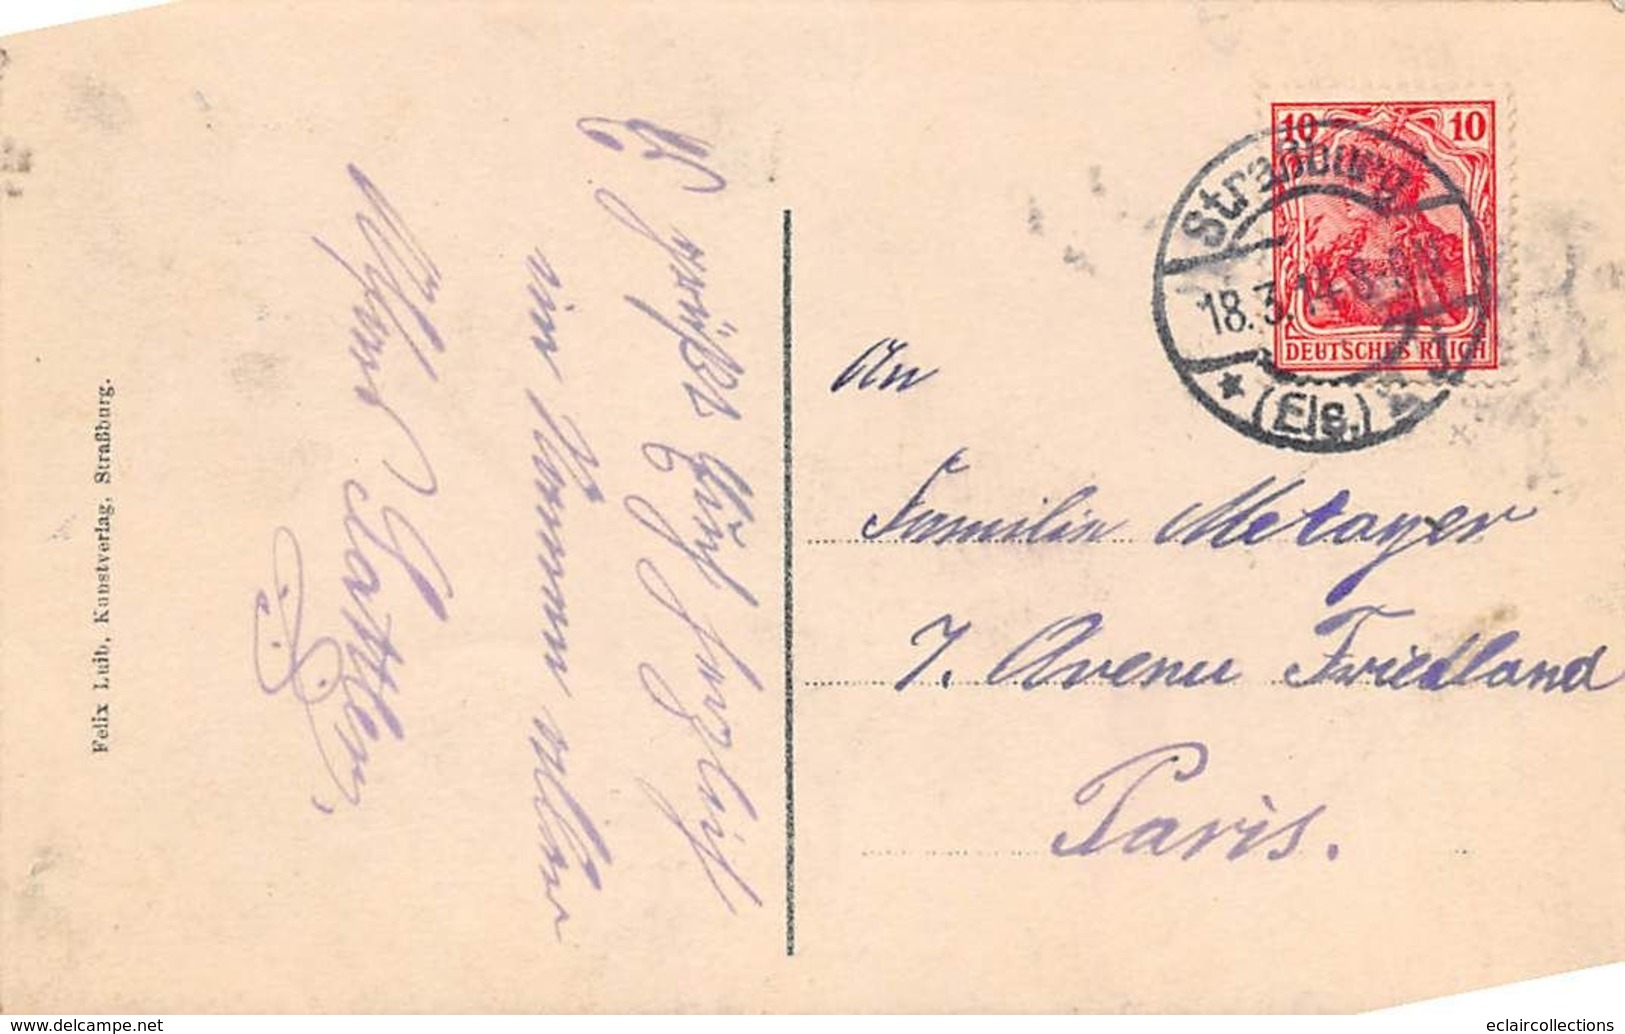 Es grüßt Euch herzlich
im Namen aller
Sattler
An
Familie Metayer
7. Avenue Friedland
Paris.
10 10
DEUTSCHES REICH
Straßburg
18.3.14. 8-9 N
(Els.)
Felix Luib, Kunstverlag, Straßburg.
www.delcampe.net
eclaircollections